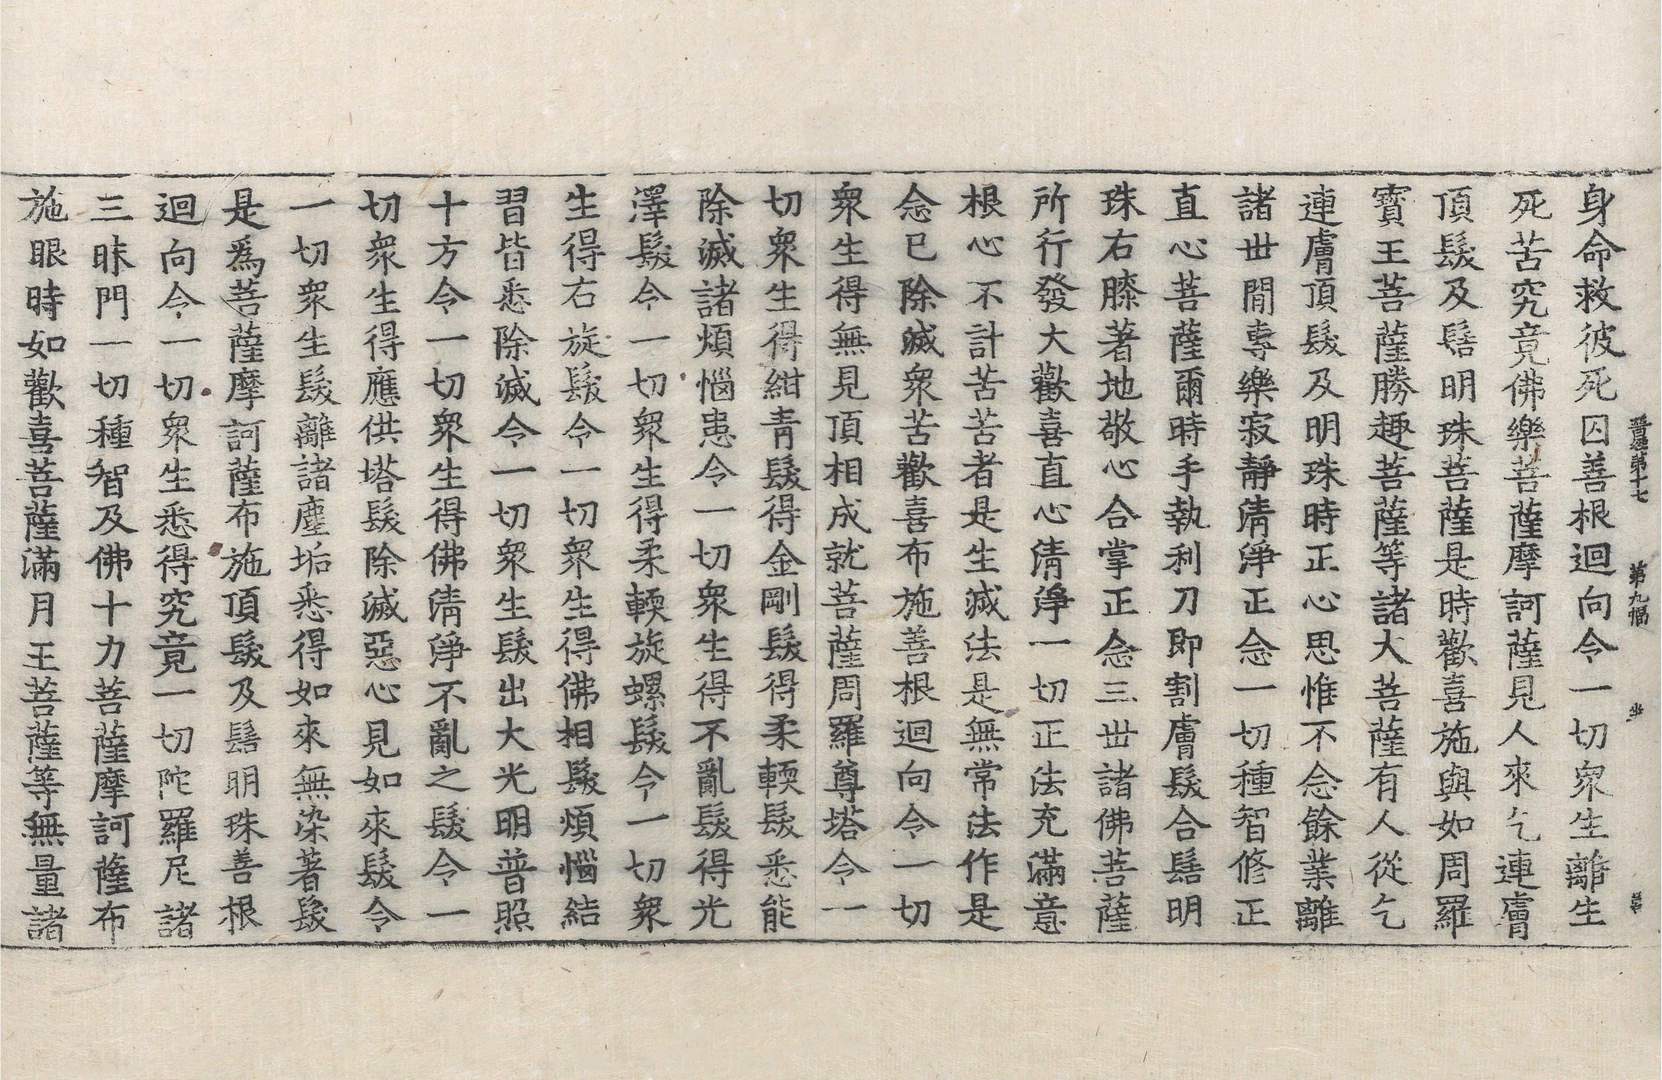 晋經第十七　第九幅　坐
身命救彼死囚善根迴向令一切衆生離生
死苦究竟佛樂菩薩摩訶薩見人來乞連膚
頂髮及髻明珠菩薩是時歡喜施與如周羅
寶王菩薩勝趣菩薩等諸大菩薩有人從乞
連膚頂髮及明珠時正心思惟不念餘業離
諸世閒專樂寂靜清淨正念一切種智修正
直心菩薩爾時手執利刀即割膚髮合髻明
珠右膝著地敬心合掌正念三世諸佛菩薩
所行發大歡喜直心清淨一切正法充滿意
根心不計苦苦者是生滅法是無常法作是
念已除滅衆苦歡喜布施善根迴向令一切
衆生得無見頂相成就菩薩周羅尊塔令一
切衆生得紺青髮得金剛髮得柔輭髮悉能
除滅諸煩惱患令一切衆生得不亂髮得光
澤髮令一切衆生得柔輭旋螺髮令一切衆
生得右旋髮令一切衆生得佛相髮煩惱結
習皆悉除滅令一切衆生髮出大光明普照
十方令一切衆生得佛清淨不亂之髮令一
切衆生得應供塔髮除滅惡心見如來髮令
一切衆生髮離諸塵垢悉得如來無染著髮
是爲菩薩摩訶薩布施頂髮及髻明珠善根
迴向令一切衆生悉得究竟一切陀羅尼諸
三昧門一切種智及佛十力菩薩摩訶薩布
施眼時如歡喜菩薩滿月王菩薩等無量諸